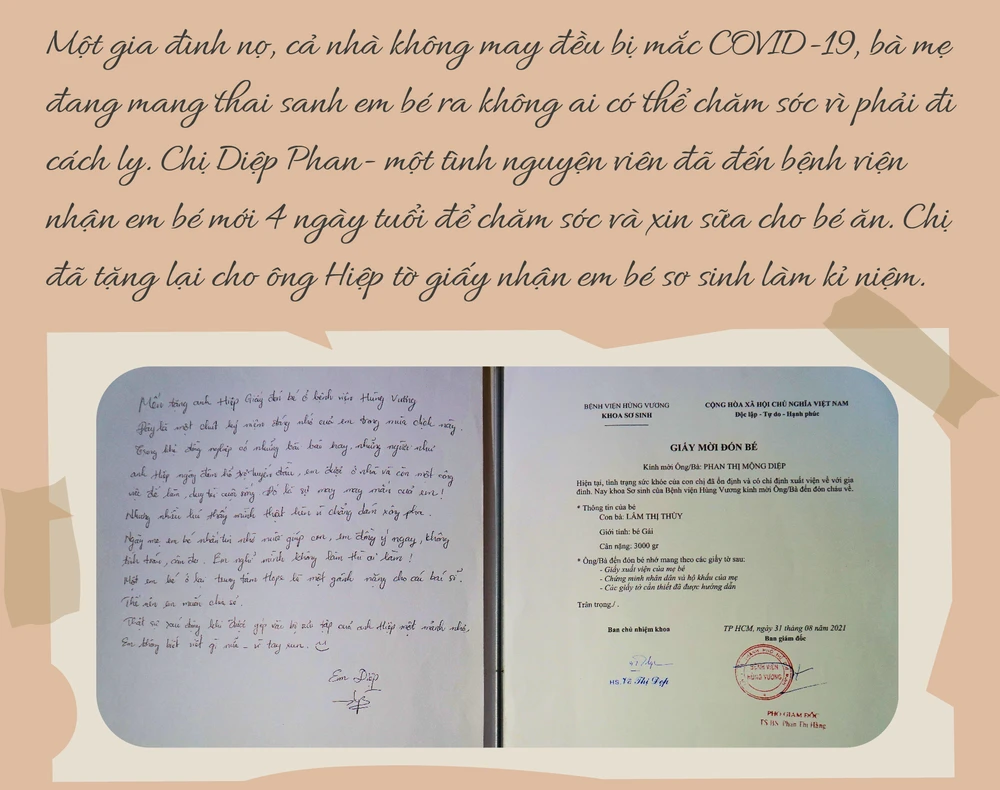 Một gia đình nọ, cả nhà không may đều bị mắc COVID-19, bà mẹ
đang mang thai sanh em bé ra không ai có thể chăm sóc vì phải đi
cách ly. Chị Diệp Phan- một tình nguyện viên đã đến bệnh viện
nhận em bé mới 4 ngày tuổi để chăm sóc và xin sữa cho bé ăn. Chị
đã tặng lại cho ông Hiệp tờ giấy nhận em bé sơ sinh làm kỉ niệm.
Mến tặng anh Hiệp Giấy đón bé ở bệnh viện Hùng Vương
Đây là một chút kỷ niệm đáng nhớ của em trong mùa dịch này.
Trong khi đồng nghiệp có những bài báo hay, những người như
anh Hiệp ngày đêm bổ sợ tuyến đầu, em được ở nhà và còn một công
việc để làm, duy trì cuộc sống đó là sự may mắn của em!
Nhưng nhiều lúc thấy mình thật hèn vì chẳng dám xông pha.
Ngày mẹ em bé nhắn tin nhờ mình giúp con, em đồng ý ngay, không
tính toán, cân đo. Em nghĩ mình không làm thì ai làm!
Một em bé ở lại trung tâm Hope là một gánh nặng cho các bác sĩ.
Thế nên em muốn chia sẻ.
Thật sự xúc động khi được góp vào bộ sưu tập của anh Hiệp một mảnh nhỏ,
Em không biết viết gì nữa - vì tay run.
Em Diệp
BỆNH VIỆN HÙNG VƯƠNG
KHOA SƠ SINH
CỘNG HÒA XÃ HỘI CHỦ NGHĨA VIỆT NAM
Độc lập - Tự do - Hạnh phúc
GIẤY MỜI ĐÓN BÉ
Kính mời Ông/Bà: PHAN THỊ MỘNG DIỆP
Hiện tại, tình trạng sức khỏe của con chị đã ổn định và có chỉ định xuất viện về với gia
đình. Nay khoa Sơ sinh của Bệnh viện Hùng Vương kính mời Ông/Bà đến đón cháu về.
* Thông tin của bé
Con bà: LÂM THỊ THÙY
Giới tính: bé Gái
Cân nặng: 3000 gr
* Ông/Bà đến đón bé nhớ mang theo các giấy tờ sau:
- Giấy xuất viện của mẹ bé
- Chứng minh nhân dân và hộ khẩu của mẹ
- Các giấy tờ cần thiết đã được hướng dẫn
Trân trọng./.
Ban chủ nhiệm khoa
TP HCM, ngày 31 tháng 08 năm 2021
Ban giám đốc
BỆNH VIỆN
HÙNG VƯƠNG
HS. Tô Thị Đẹp
PHÓ GIÁM ĐỐC
TS BS. Phan Thị Hằng